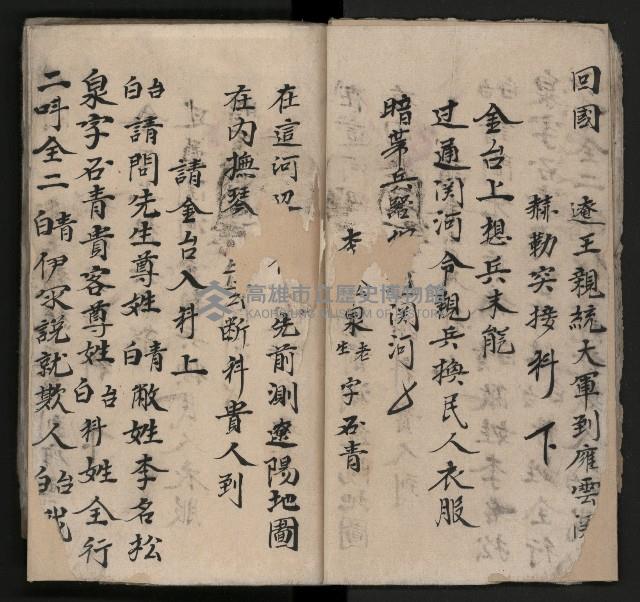 回國 遼王親統大軍到雁雲
赫勒突接科 下
金台上想兵未能
过通関河令親兵換民人衣服
暗葉兵器
関河
李 泉老生 字石青
在這河边 先前測遼陽地圖
在內撫琴 断科貴人到
請金台入科上
白台請問先生尊姓白青敝姓李名松
泉字石青貴客尊姓白台科姓全行
二呌全二白青伊家說就欺人白台
高雄市立歷史博物館
KAOHSIUNG MUSEUM OF HISTORY